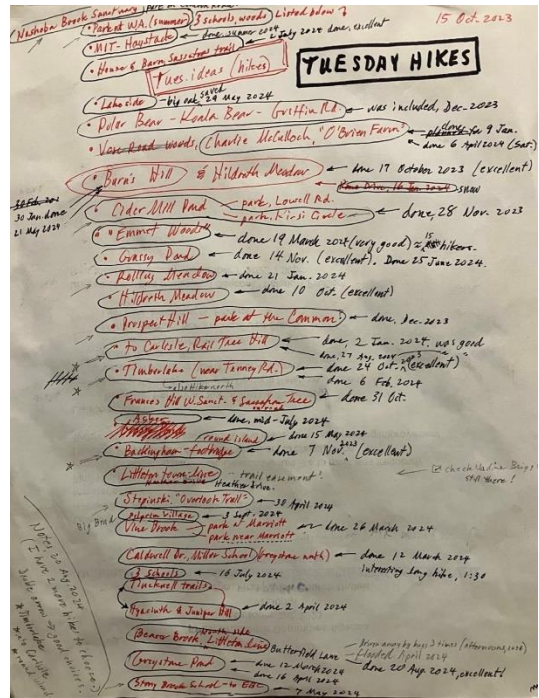 Nashoba Brook Sanctuary
15 Oct. 2023
• Park at WA. (summer) 3 schools, woods Listed below
• MIT-Haystack ← done, summer 2024
• House & Barn, Sassafras trail ← 2 July 2024 done, excellent
Tues. ideas (hikes)
TUESDAY HIKES
• Lakeside - big oak saved 29 May 2024
• Polar Bear - Koala Bear - Griffin Rd. ← was included, Dec. 2023
• Vose Road woods, Charlie McCulloch, "O'Brien Farm" ← planned done for 9 Jan.
← done 6 April 2024 (Sat.)
• Burn's Hill & Hildreth Meadow ← done 17 October 2023 (excellent)
16 Jan. 2024 snow
30 Jan. done
21 May 2024
• Cider Mill Pond - park, Lowell Rd.
- park, Kirsi Circle ← done, 28 Nov. 2023
• "Emmet Woods" ← done 19 March 2024 (very good) ≈ 15 hikers.
• Grassy Pond ← done 14 Nov. (excellent). Done 25 June 2024.
• Rollins Meadow ← done 21 Jan. 2024
• Hildreth Meadow ← done 10 Oct. (excellent)
• Prospect Hill - park at the Common ← done, Dec. 2023
• to Carlisle, Rail Tree Hill ← done, 2 Jan. 2024. was good
done, 27 Aug. 2024
• Timberlake (near Tenney Rd.) ← done 24 Oct. 2023 (excellent)
← done 6 Feb. 2024
also Hike north
• Frances Hill W. Sanct. & Sassafras Tree ← done 31 Oct.
← done, mid-July 2024
round island ← done 15 May 2024
• Buckingham - footbridge ← done 7 Nov. 2023 (excellent)
• Littleton town line -- trail easement?
Heather Drive.
check Nadine Briggs
still there!
Stepinski, "Overlook Trail" ← 30 April 2024
Pilgrim Village ← 3 Sept. 2024
Vine Brook - park at Marriott
park near Marriott ← done 26 March 2024
Caldwell Dr., Miller School (Greystone north) ← done 12 March 2024
interesting long hike, 1:30
3 schools ← 16 July 2024
Tucknell trails
Hyacinth & Juniper Hill ← done 2 April 2024
Beaver Brook North side, Littleton line, Butterfield Lane
driven away by bugs 3 times (afternoons, 2024)
flooded April 2024
Greystone Pond ← done 12 March 2024
← done 16 April 2024
done 20 Aug. 2024, excellent!
Stony Brook School - to East ← 7 May 2024
Notes, 20 Aug 2024
(I have 2 more hikes to choose)